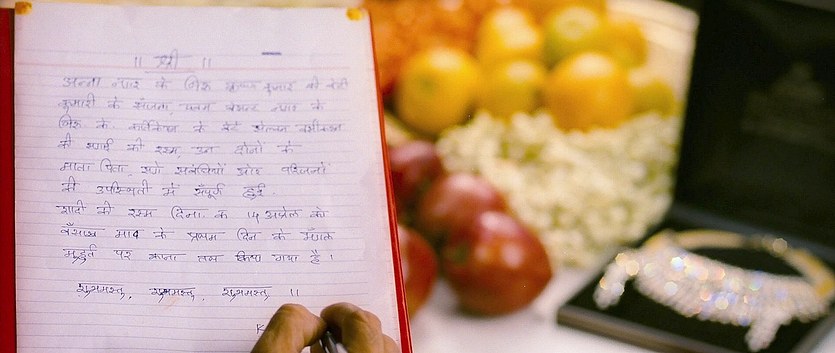 ॥ श्री ॥
अन्ना नगर के श्रीरू कृष्ण कुमार की बेटी
कुमारी के संजना, एवम के नगर के
श्रीरू के. कार्तिकेन के बेटे सेल्वन वसीकरन
की सगाई की रस्म, उन दोनों के
माता पिता, सगे संबंधियों और परिजनों
की उपस्थिती में संपूर्ण हुई.
शादी की रस्म दिनांक 14 अप्रेल को
वैसाख माह के प्रथम दिन के मंगल
मुहूर्त पर करना तय किया गया है।
शुभमस्तु, शुभमस्तु, शुभमस्तु ॥
K